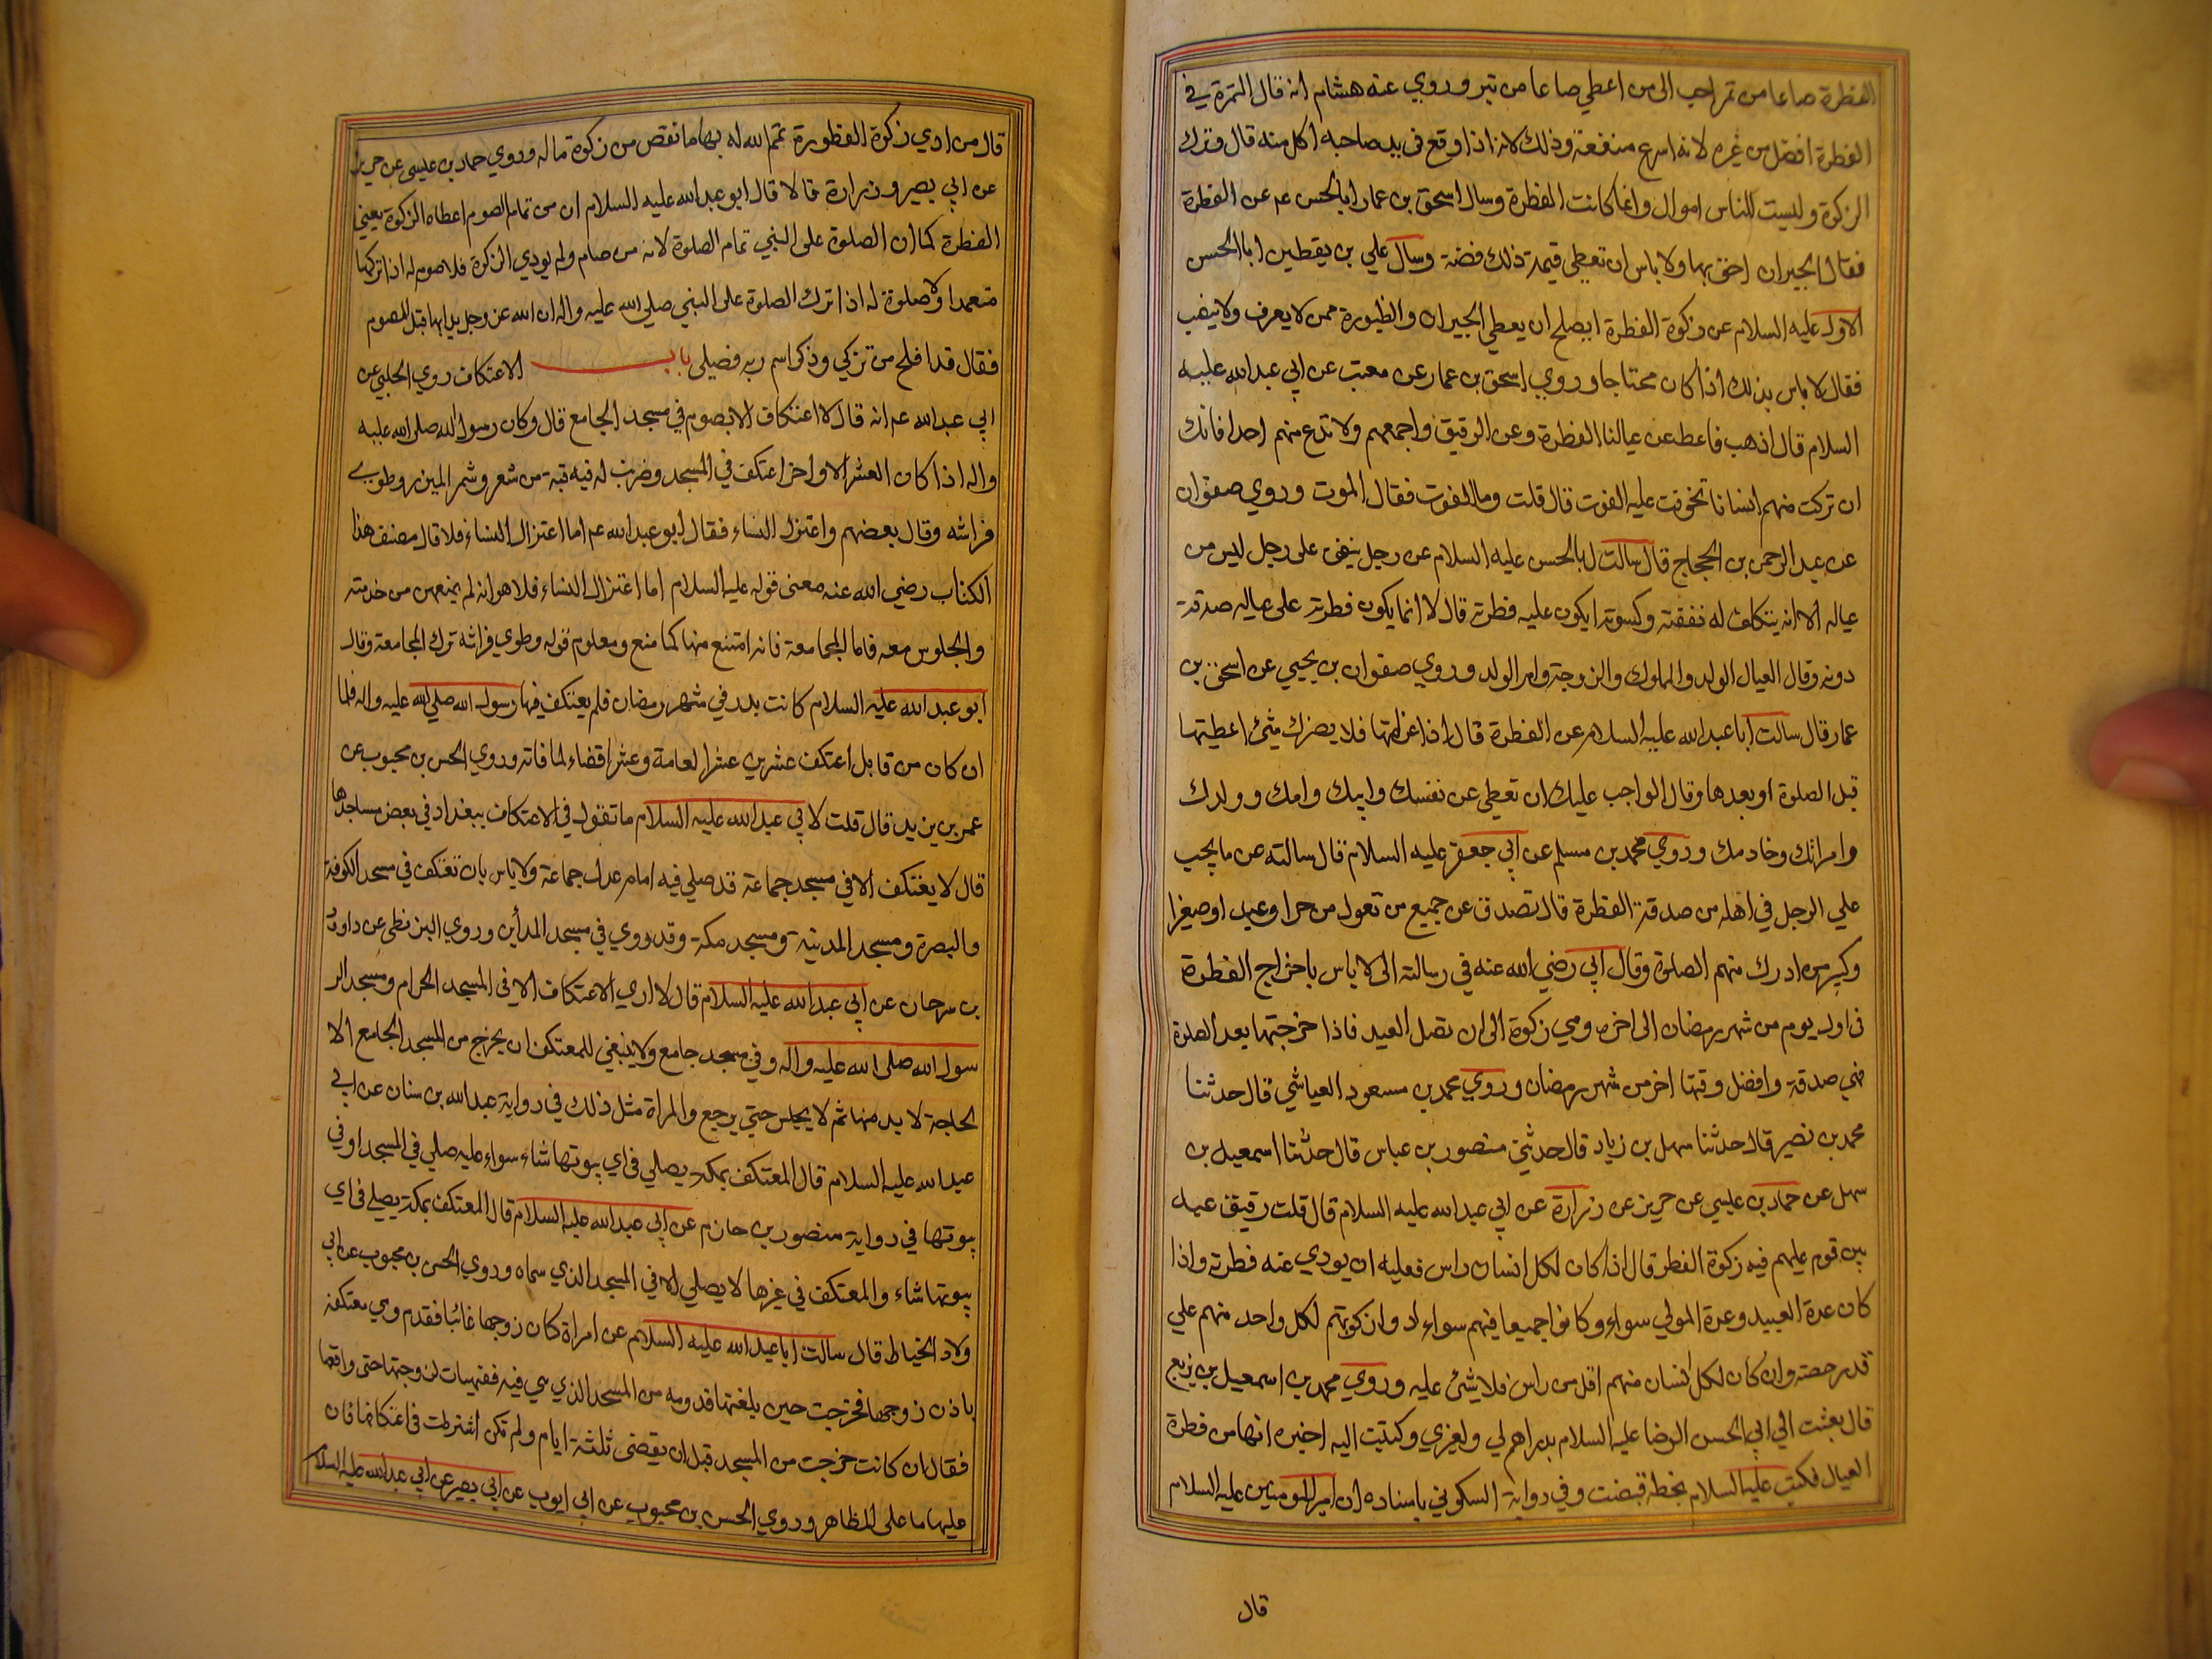 الفطرة صاعا من تمر احب الي من اعطي صاعا من تبر وروي عنه هشام انه قال التمرة في
الفطرة افضل من غيره لانه اسرع منفعة وذلك لانه اذا وقع في يد صاحبه اكل منه قال ونزلت
الزكوة وليست للناس اموال وانما كانت الفطرة وسال اسحق بن عمار ابا الحسن عم عن الفطرة
فقال الجيران احق بها ولا باس ان تعطي قيمة ذلك فضة وسال علي بن يقطين ابا الحسن
الاول عليه السلام عن زكوة الفطرة ايصلح ان يعطي الجيران والظيورة ممن لا يعرف ولا ينصب
فقال لا باس بذلك اذا كان محتاجا وروي اسحق بن عمار عن معتب عن ابي عبد الله عليه
السلام قال اذهب فاعط عن عيالنا الفطرة وعن الرقيق واجمعهم ولا تدع منهم احدا فانك
ان تركت منهم انسانا تخوفت عليه الفوت قال قلت وما الفوت فقال الموت وروي صفوان
عن عبد الرحمن بن الحجاج قال سالت ابا الحسن عليه السلام عن رجل ينفق على رجل ليس من
عياله الا انه يتكلف له نفقته وكسوته ايكون عليه فطرته قال لا انما يكون فطرته على عياله صدقة
دونه وقال العيال الولد والمملوك والزوجة وام الولد وروي صفوان بن يحيي عن اسحق بن
عمار قال سالت ابا عبد الله عليه السلام عن الفطرة قال اذا عزلتها فلا يضرك متى اعطيتها
قبل الصلوة او بعدها وقال الواجب عليك ان تعطي عن نفسك وابيك وامك وولدك
وامراتك وخادمك وروي محمد بن مسلم عن ابي جعفر عليه السلام قال سالته عن ما يجب
علي الرجل في اهله من صدقة الفطرة قال تصدق عن جميع من تعول من حر او عبد او صغيرا
وكبير من ادرك منهم الصلوة وقال ابي رضي الله عنه في رسالته الي لا باس باخراج الفطرة
في اول يوم من شهر رمضان الى اخره وهي زكوة الى ان تصل العيد فاذا خرجتها بعد الصلوة
فهي صدقة وافضل وقتها اخر من شهر رمضان وروي محمد بن مسعود العياشي قال حدثنا
محمد بن نصير قال حدثنا سهل بن زياد قال حدثني منصور بن عباس قال حدثنا اسمعيل بن
سهل عن حماد بن عيسي عن حريز عن زرارة عن ابي عبد الله عليه السلام قال قلت رقيق عبد
بين قوم عليهم فيه زكوة الفطر قال اذا كان لكل انسان راس فعليه ان يودي عنه فطرته واذا
كان عدة العبيد وعدة الموالي سواء وكانوا جميعا فيهم سواء ادوا زكوتهم لكل واحد منهم علي
قدر حصته وان كان لكل انسان منهم اقل من راس فلا شئ عليه وروي محمد بن اسمعيل بن بزيع
قال بعثت الي ابي الحسن الرضا عليه السلام بدراهم لي ولغيري وكتبت اليه اخبره انها من فطرة
العيال فكتب عليه السلام بخطه قبضت وفي رواية السكوني باسناده ان امير المومنين عليه السلام
قال
قال من ادي زكوة الفطورة تمم الله له بها ما نقص من زكوة ماله وروي حماد بن عيسي عن حريز
عن ابي بصير وزرارة قالا قال ابو عبد الله عليه السلام ان من تمام الصوم اعطاه الزكوة يعني
الفطرة كما ان الصلوة على النبي تمام الصلوة لانه من صام ولم يودي الزكوة فلا صوم له اذا تركها
متعمدا ولا صلوة له اذا ترك الصلوة على النبي صلي الله عليه واله ان الله عز وجل بدا بها قبل الصوم
فقال قد افلح من تزكي وذكر اسم ربه فصلى باب الاعتكاف روي الحلبي عن
ابي عبد الله عم انه قال لا اعتكاف الا بصوم في مسجد الجامع قال وكان رسول الله صلى الله عليه
واله اذا كان العشر الاواخر اعتكف في المسجد وضربت له فيه قبة من شعر وشمر الميزر وطوي
فراشه وقال بعضهم واعتزل النساء فقال ابو عبد الله عم اما اعتزال النساء فلا قال مصنف هذا
الكتاب رضي الله عنه معنى قوله عليه السلام اما اعتزال النساء فلا هو انه لم يمنعهن من خدمته
والجلوس معه فاما المجامعة فانه امتنع منها كما منع ومعلوم قوله وطوي فراشه ترك المجامعة وقال
ابو عبد الله عليه السلام كانت بدر في شهر رمضان فلم يعتكف فيها رسول الله صلي الله عليه واله فلما
ان كان من قابل اعتكف عشرين عشرا لعامه وعشرا قضاء لما فاته وروي الحسن بن محبوب عن
عمر بن يزيد قال قلت لابي عبد الله عليه السلام ما تقول في الاعتكاف ببغداد في بعض مساجدها
قال لا يعتكف الا في مسجد جماعة قد صلي فيه امام عدل جماعة ولا باس بان تعتكف في مسجد الكوفة
والبصرة ومسجد المدينة ومسجد مكة وقد روي في مسجد المدأين وروي البزنطي عن داود
بن سرحان عن ابي عبد الله عليه السلام قال لا اري الاعتكاف الا في المسجد الحرام ومسجد الر
سول الله صلى الله عليه واله وفي مسجد جامع ولا ينبغي للمعتكف ان يخرج من المسجد الجامع الا
لحاجة لا بد منها ثم لا يجلس حتي يرجع والمراة مثل ذلك في رواية عبد الله بن سنان عن ابي
عبد الله عليه السلام قال المعتكف بمكة يصلي في اي بيوتها شاء سواء عليه صلي في المسجد او في
بيوتها في رواية منصور بن حازم عن ابي عبد الله عليه السلام قال المعتكف بمكة يصلي في اي
بيوتها شاء والمعتكف في غيرها لا يصلي الا في المسجد الذي سماه وروي الحسن بن محبوب عن ابي
ولاد الخياط قال سالت ابا عبد الله عليه السلام عن امراة كان زوجها غائبا فقدم وهي معتكفة
باذن زوجها فخرجت حين بلغتها قدومه من المسجد الذي هي فيه فتهيات لزوجها حتى واقعها
فقال ان كانت خرجت من المسجد قبل ان يقضي ثلثة ايام ولم تكن اشترطت في اعتكافها فان
عليها ما على المظاهر وروي الحسن بن محبوب عن ابي ايوب عن ابي بصير عن ابي عبد الله عليه السلام